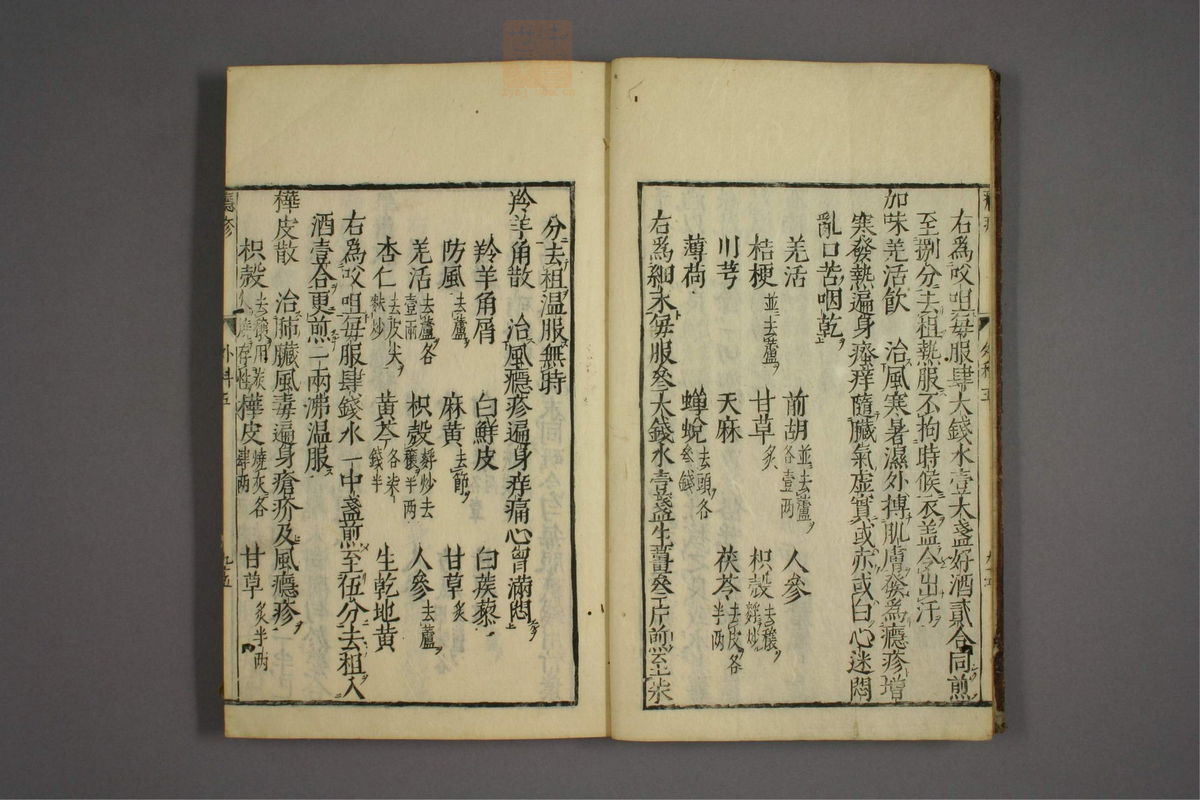 右為㕮咀每服肆大錢水壹大盞好酒貳合同煎
至捌分去柤熱服不拘時候衣盖令出汗
加味羌活飲　治風寒暑濕外搏肌膚發為癮疹增
寒發熱遍身瘙痒隨臟氣虛實或赤或白心迷悶
亂口苦咽乾
羌活　前胡並去蘆各壹兩　人參
桔梗並去蘆　甘草炙　枳殼去穰麩炒
川芎　天麻　茯苓去皮各半两
薄荷　蟬蛻去頭各參錢
右為細末每服叄大錢水壹盞生薑叄片煎至柒
分去柤温服無時
羚羊角散　治風癮疹遍身痒痛心胷滿悶
羚羊角屑　白鮮皮　白蒺藜
防風去蘆　麻黄去節　甘草炙
羌活去蘆各壹兩　枳殼麩炒去穰半两　人參去蘆
杏仁去皮尖麩炒　黄芩各柒錢半　生乾地黄
右為㕮咀每服肆錢水一中盞煎至伍分去柤入
酒壹合更煎一兩沸温服
樺皮散　治肺臟風毒遍身瘡疥及風癮疹
枳殼去穰用炭燒存性　樺皮燒灰各肆两　甘草炙半两
癮疹　外科五　九五